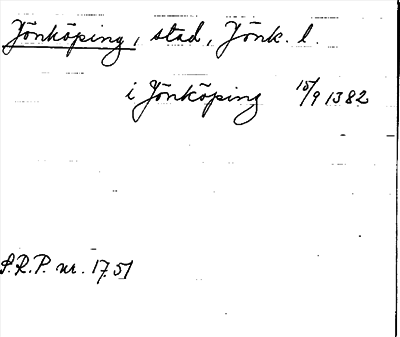 Jönköping, stad, Jönk. l.
i Jönköping 15/9 1382
S.R.P. nr. 1751